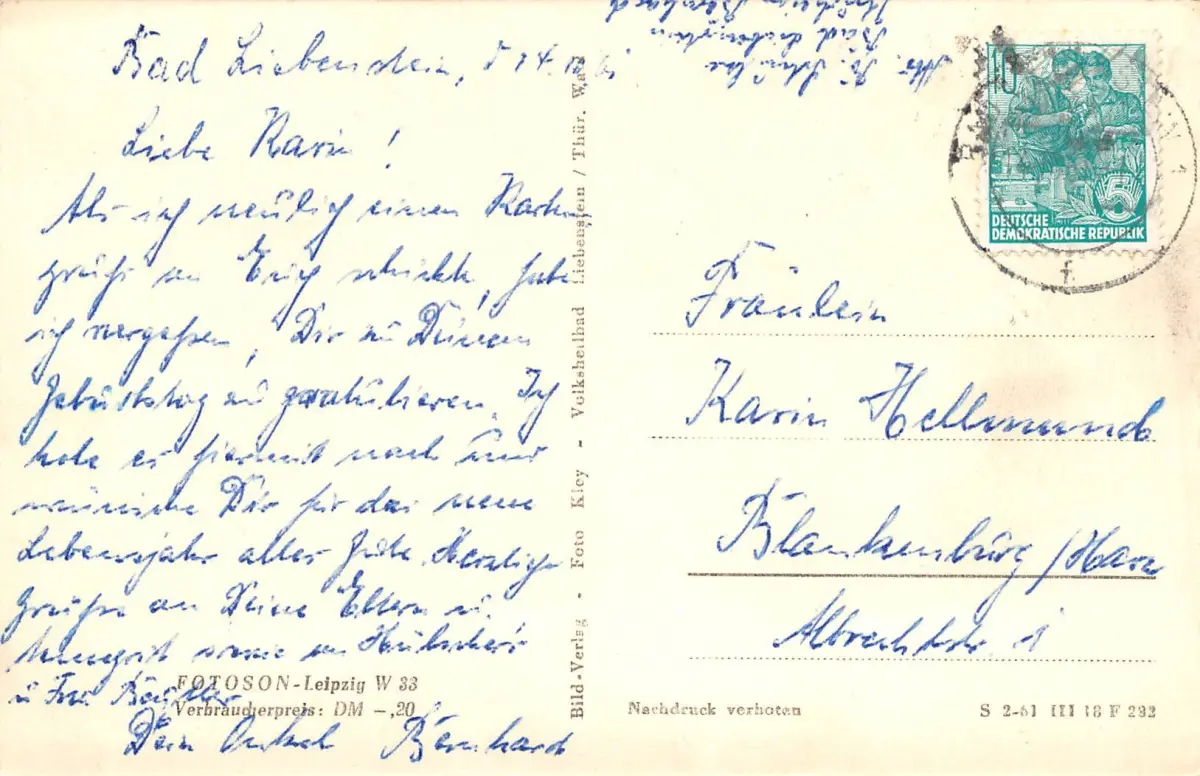 Bad Liebenstein, d. 14.
Liebe Karin!
Als ich neulich einen Karten-
gruß an Erich schickte, habe
ich vergessen, Dir zu Deinem
Geburtstag zu gratulieren. Ich
hole es hiermit nach und
wünsche Dir für das neue
Lebensjahr alles Gute. Herzliche
Grüße an Deine Eltern u.
Annegret sowie an
u. Frau
Dein Onkel Bernhard
FOTOSON-Leipzig W 33
Verbraucherpreis: DM -,20
Bild-Verlag - Foto Kley - Volksheilbad Liebenstein / Thür. Wald
Abs. B.
Bad Liebenstein
Bernhard
10
5
DEUTSCHE
DEMOKRATISCHE REPUBLIK
f
Fräulein
Karin Hellmund
Blankenburg /Harz
Albrechtstr. 1
Nachdruck verboten
S 2-61 III 18 F 292